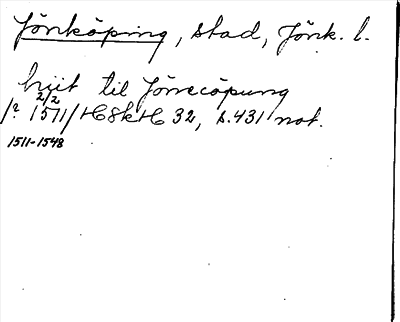 Jönköping, stad, Jönk. l.
hiit til Jönecöpung
2/2
/? 1511/ HSkH 32, s. 431 not.
1511-1548